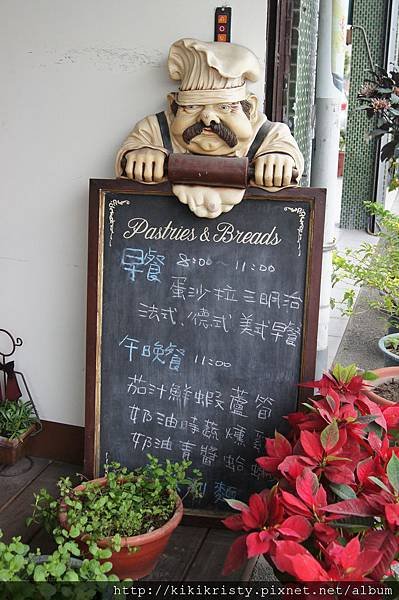 Pastries & Breads
早餐 8:00 ~ 11:00
蛋沙拉三明治
法式、德式 美式早餐
午晚餐 11:00
茄汁鮮蝦蘆筍
奶油時蔬燻
奶油青醬蛤
麵
http://kikikiki.pixnet.net/album